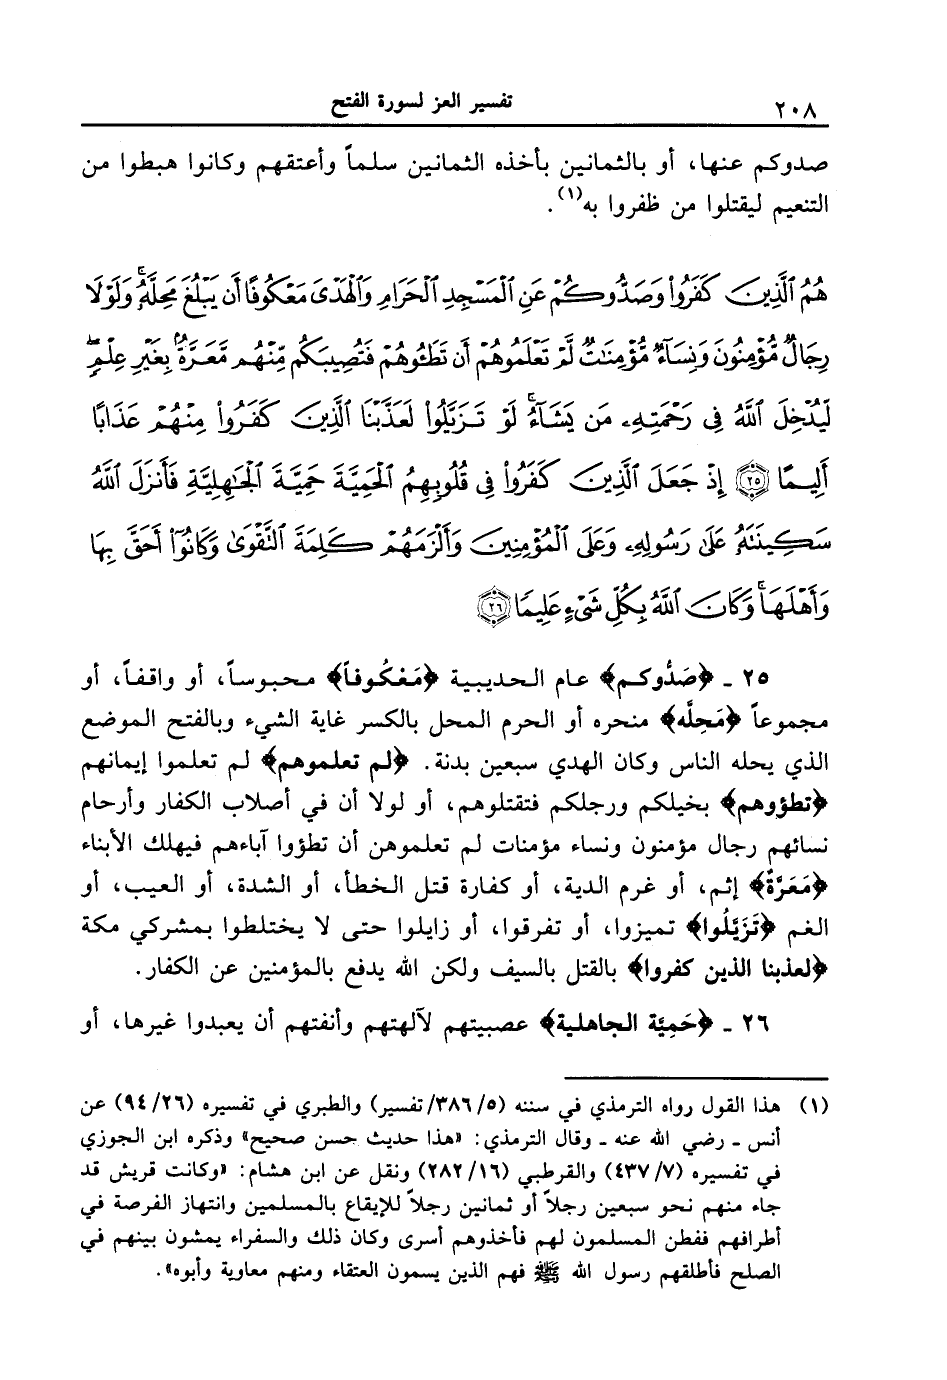 ٢٠٨ تفسير العز لسورة الفتح
صدوكم عنها، أو بالثمانين بأخذه الثمانين سلماً وأعتقهم وكانوا هبطوا من
التنعيم ليقتلوا من ظفروا به(١).
هُمُ الَّذِينَ كَفَرُوا۟ وَصَدُّوكُمْ عَنِ الْمَسْجِدِ الْحَرَامِ وَالْهَدْىَ مَعْكُوفًا أَن يَبْلُغَ مَحِلَّهُۥ ۚ وَلَوْلَا
رِجَالٌ مُّؤْمِنُونَ وَنِسَآءٌ مُّؤْمِنَـٰتٌ لَّمْ تَعْلَمُوهُمْ أَن تَطَـُٔوهُمْ فَتُصِيبَكُم مِّنْهُم مَّعَرَّةٌۢ بِغَيْرِ عِلْمٍ ۖ
لِّيُدْخِلَ اللَّهُ فِى رَحْمَتِهِۦ مَن يَشَآءُ ۚ لَوْ تَزَيَّلُوا۟ لَعَذَّبْنَا الَّذِينَ كَفَرُوا۟ مِنْهُمْ عَذَابًا
أَلِيمًا ﴿٢٥﴾ إِذْ جَعَلَ الَّذِينَ كَفَرُوا۟ فِى قُلُوبِهِمُ الْحَمِيَّةَ حَمِيَّةَ الْجَـٰهِلِيَّةِ فَأَنزَلَ اللَّهُ
سَكِينَتَهُۥ عَلَىٰ رَسُولِهِۦ وَعَلَى الْمُؤْمِنِينَ وَأَلْزَمَهُمْ كَلِمَةَ التَّقْوَىٰ وَكَانُوٓا۟ أَحَقَّ بِهَا
وَأَهْلَهَا ۚ وَكَانَ اللَّهُ بِكُلِّ شَىْءٍ عَلِيمًا ﴿٢٦﴾
٢٥ ـ ﴿صَدُّوكم﴾ عام الحديبية ﴿مَعْكُوفاً﴾ محبوساً، أو واقفاً، أو
مجموعاً ﴿مَحِلَّه﴾ منحره أو الحرم المحل بالكسر غاية الشيء وبالفتح الموضع
الذي يحله الناس وكان الهدي سبعين بدنة. ﴿لم تعلموهم﴾ لم تعلموا إيمانهم
﴿تطؤوهم﴾ بخيلكم ورجلكم فتقتلوهم، أو لولا أن في أصلاب الكفار وأرحام
نسائهم رجال مؤمنون ونساء مؤمنات لم تعلموهن أن تطؤوا آباءهم فيهلك الأبناء
﴿مَعَرَّةٌ﴾ إثم، أو غرم الدية، أو كفارة قتل الخطأ، أو الشدة، أو العيب، أو
الغم ﴿تَزَيَّلُوا﴾ تميزوا، أو تفرقوا، أو زايلوا حتى لا يختلطوا بمشركي مكة
﴿لعذبنا الذين كفروا﴾ بالقتل بالسيف ولكن الله يدفع بالمؤمنين عن الكفار.
٢٦ ـ ﴿حَمِيَّة الجاهلية﴾ عصبيتهم لآلهتهم وأنفتهم أن يعبدوا غيرها، أو
(١) هذا القول رواه الترمذي في سننه (٥/٣٨٦/تفسير) والطبري في تفسيره (٢٦/٩٤) عن
أنس ـ رضي الله عنه ـ وقال الترمذي: «هذا حديث حسن صحيح» وذكره ابن الجوزي
في تفسيره (٧/٤٣٧) والقرطبي (١٦/٢٨٢) ونقل عن ابن هشام: «وكانت قريش قد
جاء منهم نحو سبعين رجلاً أو ثمانين رجلاً للإيقاع بالمسلمين وانتهاز الفرصة في
أطرافهم ففطن المسلمون لهم فأخذوهم أسرى وكان ذلك والسفراء يمشون بينهم في
الصلح فأطلقهم رسول الله ﷺ فهم الذين يسمون العتقاء ومنهم معاوية وأبوه».